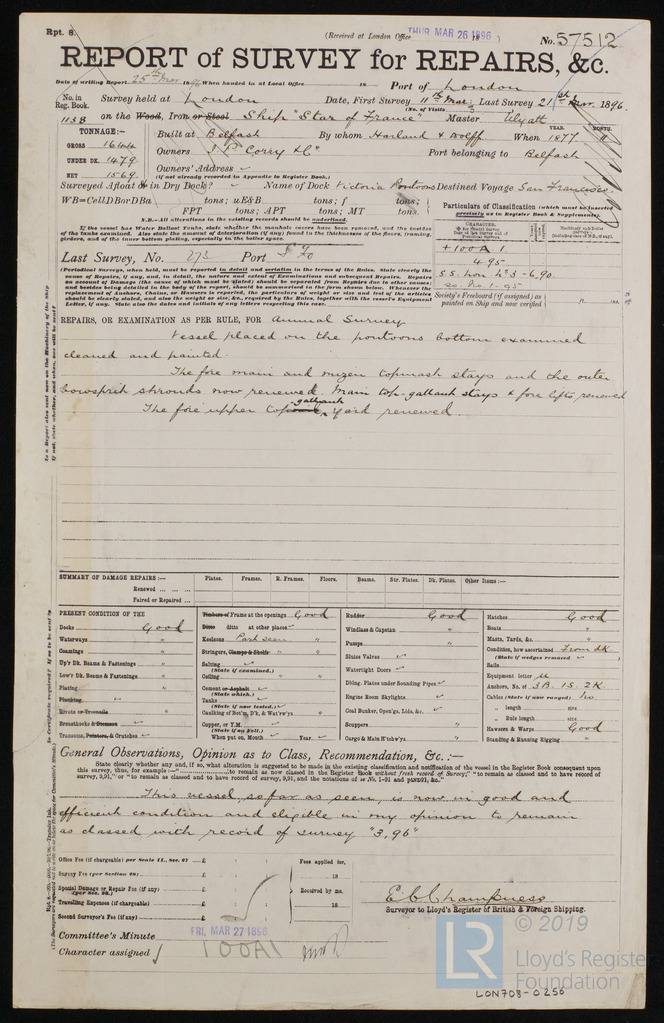 Rpt. 8.
(Received at London Office THUR MAR 26 1896 18 )
No. 57512
REPORT of SURVEY for REPAIRS, &c.
Date of writing Report 25th Mar 1896 When handed in at Local Office 18 Port of London
No. in Reg. Book. Survey held at London Date, First Survey 11th Mar: Last Survey 21st Mar. 1896.
(No. of Visits 3
1138 on the Wood, Iron or Steel Ship "Star of France" Master Wyatt
TONNAGE:— Built at Belfast By whom Harland & Wolff When 1877
YEAR. MONTH.
GROSS 1644
Owners J. P. Corry & Co Port belonging to Belfast
UNDER DK. 1479
Owners' Address
NET 1569
(if not already recorded in Appendix to Register Book.)
Surveyed Afloat or in Dry Dock? Name of Dock Victoria Pontoons Destined Voyage San Francisco
WB=CellDBorDBa tons; uE&B tons; f tons;
FPT tons; APT tons; MT tons.
N.B.—All alterations in the existing records should be underlined.
If the vessel has Water Ballast Tanks, state whether the manhole covers have been removed, and the insides of the tanks examined. Also state the amount of deterioration (if any) found in the thicknesses of the floors, framing, girders, and of the inner bottom plating, especially in the boiler space.
Particulars of Classification (which must be inserted precisely as in Register Book & Supplement).
CHARACTER.
+100A1
4.95
S.S. Lon. No 3 - 6.90
Last Survey, No. 273 Port S. Fo
(Periodical Surveys, when held, must be reported in detail and seriatim in the terms of the Rules. State clearly the cause of Repairs, if any, and, in detail, the nature and extent of Examinations and subsequent Repairs. Repairs on account of Damage (the cause of which must be stated) should be separated from Repairs due to other causes; and besides being detailed in the body of the report, should be summarised in the form shown below. Whenever the replacement of Anchors, Chains, or Hawsers is reported, the particulars of weight or size and test of the articles should be clearly stated, and also the weight or size, &c., required by the Rules, together with the vessel's Equipment Letter, if any. State also the dates and initials of any letters respecting this case.)
Society's Freeboard (if assigned) as painted on Ship and now verified
REPAIRS, OR EXAMINATION AS PER RULE, FOR Annual Survey
Vessel placed on the pontoons bottom examined
cleaned and painted.
The fore main and mizen topmast stays and the outer
bowsprit shrouds now renewed. Main top-gallant stays & fore lifts renewed
The fore upper top gallant yard renewed.
SUMMARY OF DAMAGE REPAIRS:— Plates. Frames. R. Frames. Floors. Beams. Str. Plates. Dk. Plates. Other Items:—
Renewed ... ... ...
Faired or Repaired ...
PRESENT CONDITION OF THE
Decks Good
Waterways "
Coamings "
Up'r Dk. Beams & Fastenings "
Low'r Dk. Beams & Fastenings "
Plating "
Planking
Rivets or Treenails "
Breasthooks & Stemson
Transoms, Pointers, & Crutches
Timbers or Frame at the openings Good
Ditto ditto at other places
Keelsons Part seen "
Stringers, Clamps & Shelfs "
Salting
(State if examined.)
Ceiling "
Cement or Asphalt
(State which.)
Tanks
(State if now tested.)
Caulking of Bot'm, D'k, & Wat'rw'ys
Copper, or Y.M.
(State if on Felt.)
When put on, Month Year
Rudder Good
Windlass & Capstan "
Pumps "
Sluice Valves
Watertight Doors
Dblng. Plates under Sounding Pipes
Engine Room Skylights.
Coal Bunker, Open'gs, Lids, &c.
Scuppers "
Cargo & Main H'tchw'ys "
Hatches Good
Boats "
Masts, Yards, &c. "
Condition, how ascertained From dk
(State if wedges removed)
Sails "
Equipment letter u
Anchors, No. of 3B. 1S. 2K.
Cables (State if now ranged) No.
" length size
" Rule length size
Hawsers & Warps Good
Standing & Running Rigging "
General Observations, Opinion as to Class, Recommendation, &c.:—
State clearly whether any, and if, so what, alteration is suggested to be made in the existing classification and notification of the vessel in the Register Book consequent upon this survey, thus, for example:—" to remain as now classed in the Register Book without fresh record of Survey," "to remain as classed and to have record of survey, 9,91," or "to remain as classed and to have record of survey, 9,91, and the notations of ss No. 1-91 and ptND91, &c."
This vessel, so far as seen, is now in good and
efficient condition and eligible in my opinion to remain
as classed with record of survey "3,96"
Office Fee (if chargeable) per Scale II., Sec. 27 £ : : Fees applied for,
Survey Fee (per Section 28) £ : : 18
Special Damage or Repair Fee (if any) £ : : Received by me,
(per Sec. 28.)
Travelling Expenses (if chargeable) £ : : 18
Second Surveyor's Fee (if any) £ : :
E. C. Champness
Surveyor to Lloyd's Register of British & Foreign Shipping.
Committee's Minute FRI. MAR 27 1896
Character assigned 100A1
© 2019
LR
Lloyd's Register
Foundation
LON708-0256